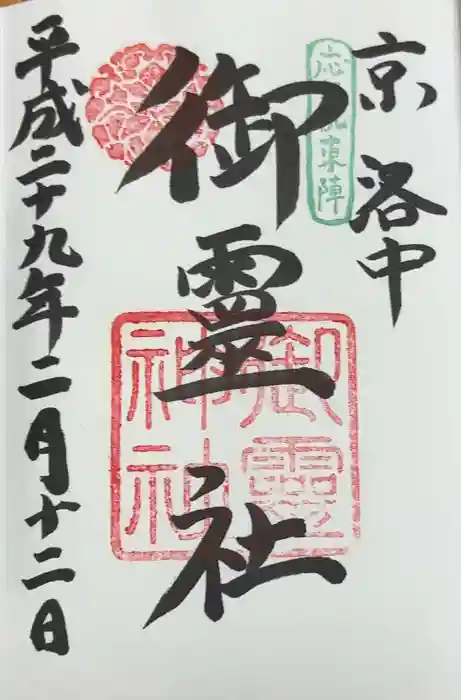 京洛中
応仁東陣
御靈社
御靈神社
平成二十九年二月十二日